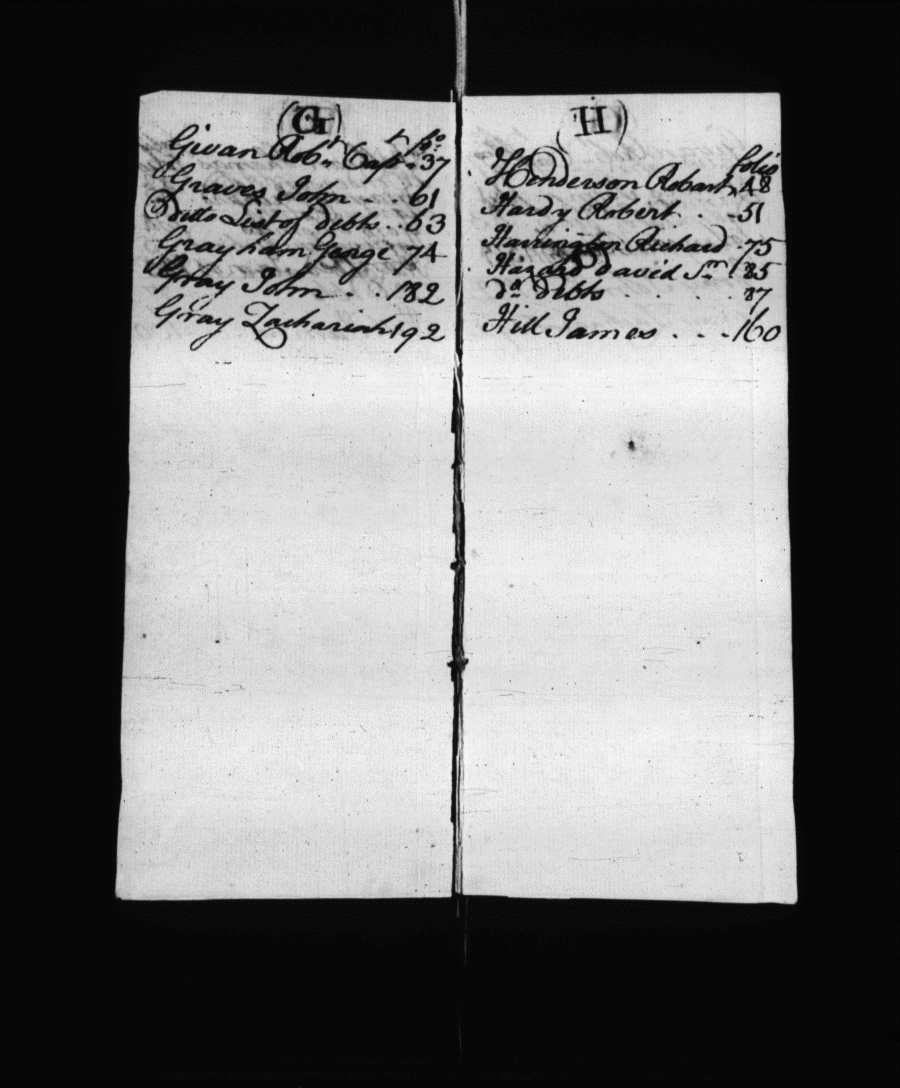 (G)
fo.
Givan Robt. Capt. 37
Graves John . . 61
Ditto List of debts . . 63
Gray ham George 74
Gray John . . 182
Gray Zachariah 192
(H)
folio
Henderson Robart 48
Hardy Robert . . 51
Harrington Richard . 75
Hazard david Snr 85
do. debts . . . . 87
Hill James . . . 160